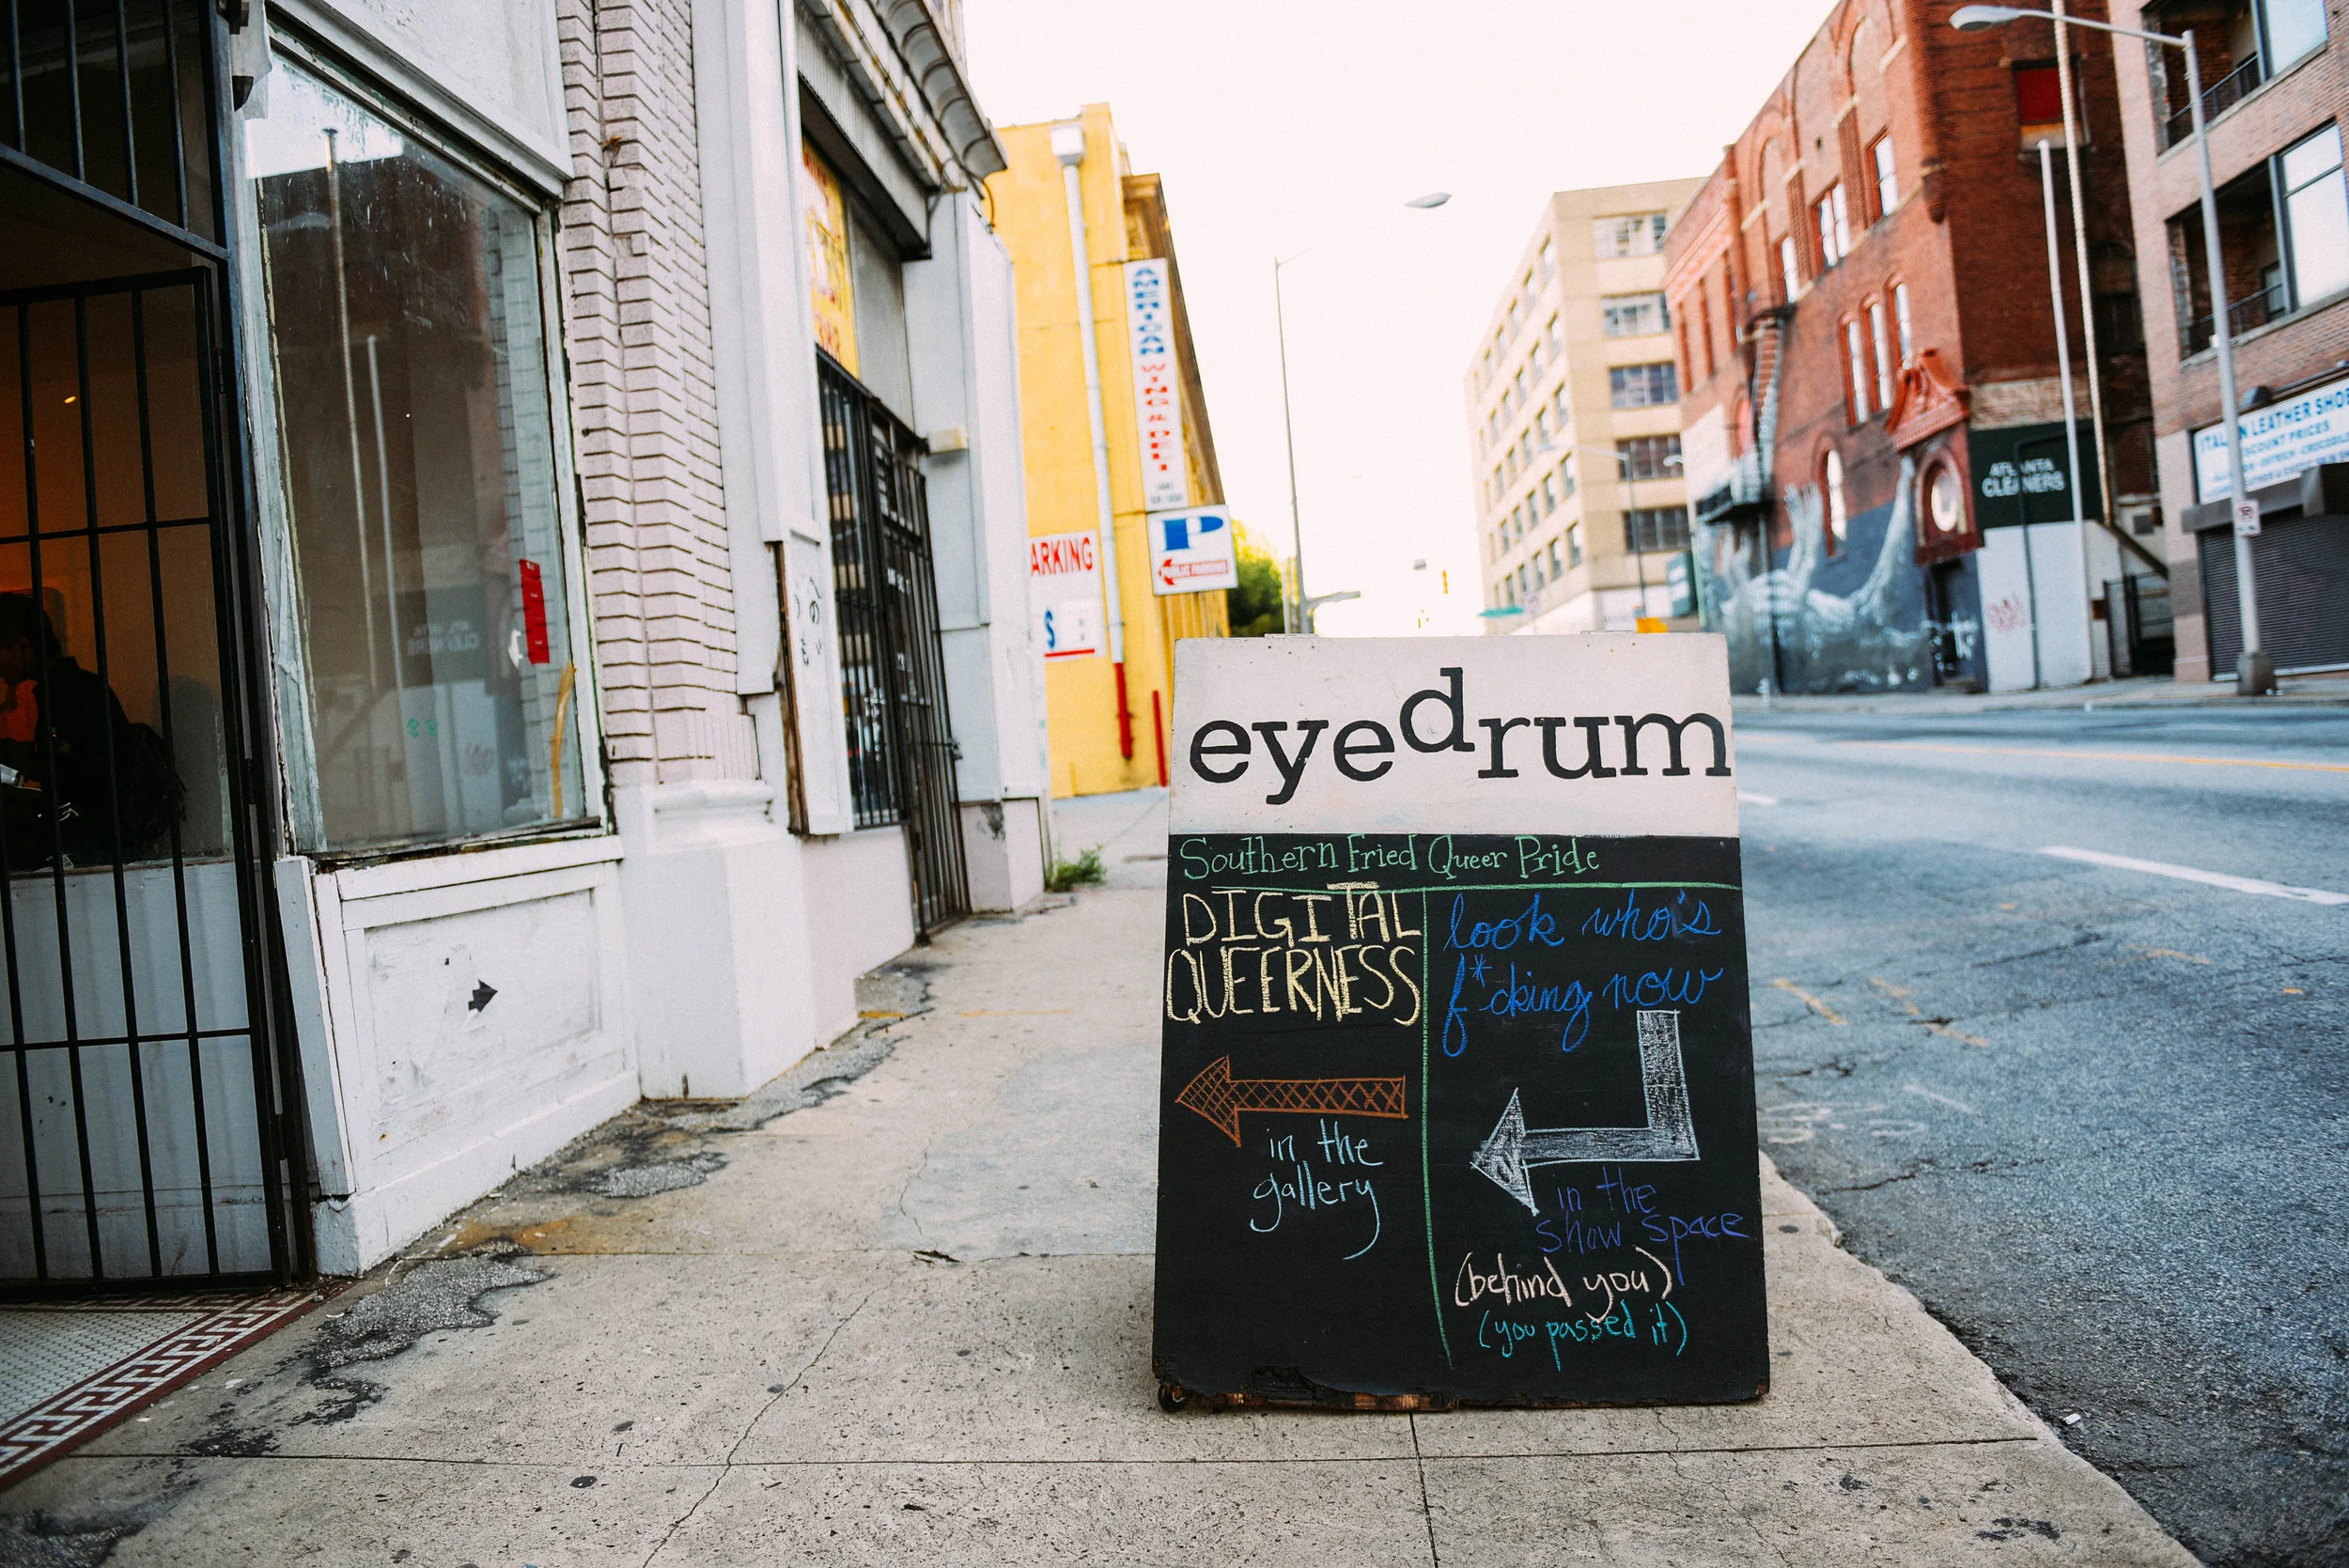 eyedrum
Southern Fried Queer Pride
DIGITAL
QUEERNESS
in the
gallery
look who's
f*cking now
in the
show space
(behind you)
(you passed it)
AMERICAN WINGS & DELI
ARKING
$
P
PUBLIC PARKING
ATLANTA
CLEANERS
LEATHER SHOP
DISCOUNT PRICES